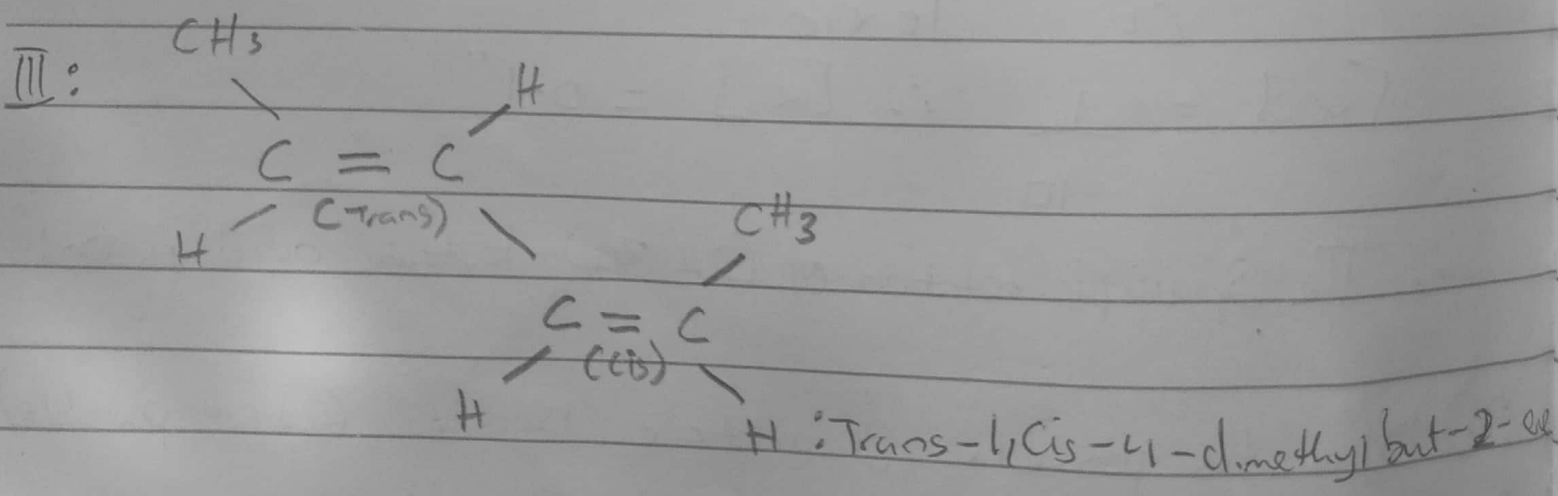 CH3
III:
H
C = C
(Trans)
H
CH3
C = C
(Cis)
H
H : Trans-1,Cis-4-dimethyl but-2-